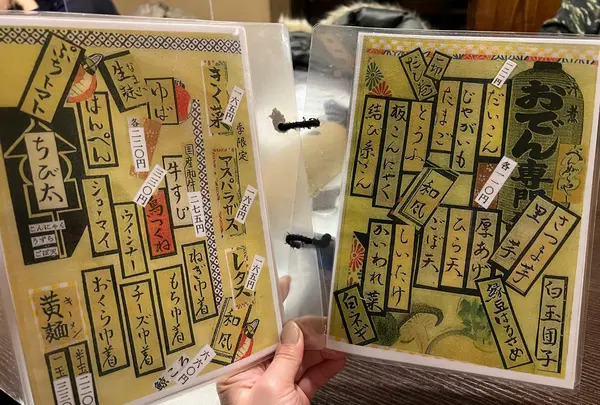 おでん専門
べんてんや〜
各一一〇円
だいこん
じゃがいも
たまご
とうふ
板こんにゃく
結び糸こん
和風
さつま芋
里芋
厚あげ
ひら天
ごぼ天
しいたけ
かいわれ菜
白ネギ
白玉団子
きく菜
六五円
季節限定
アスパラガス
レタス
六五円
和風
生麩
ゆば
各二二〇円
牛すじ
二七五円
鳥つくね
ねぎ巾着
もち巾着
チーズ巾着
おくら巾着
ウインナー
シューマイ
はんぺん
ぷちトマト
ちび太
こんにゃく
うずら
ごぼ天
黄麺
鯨ころ
六六〇円